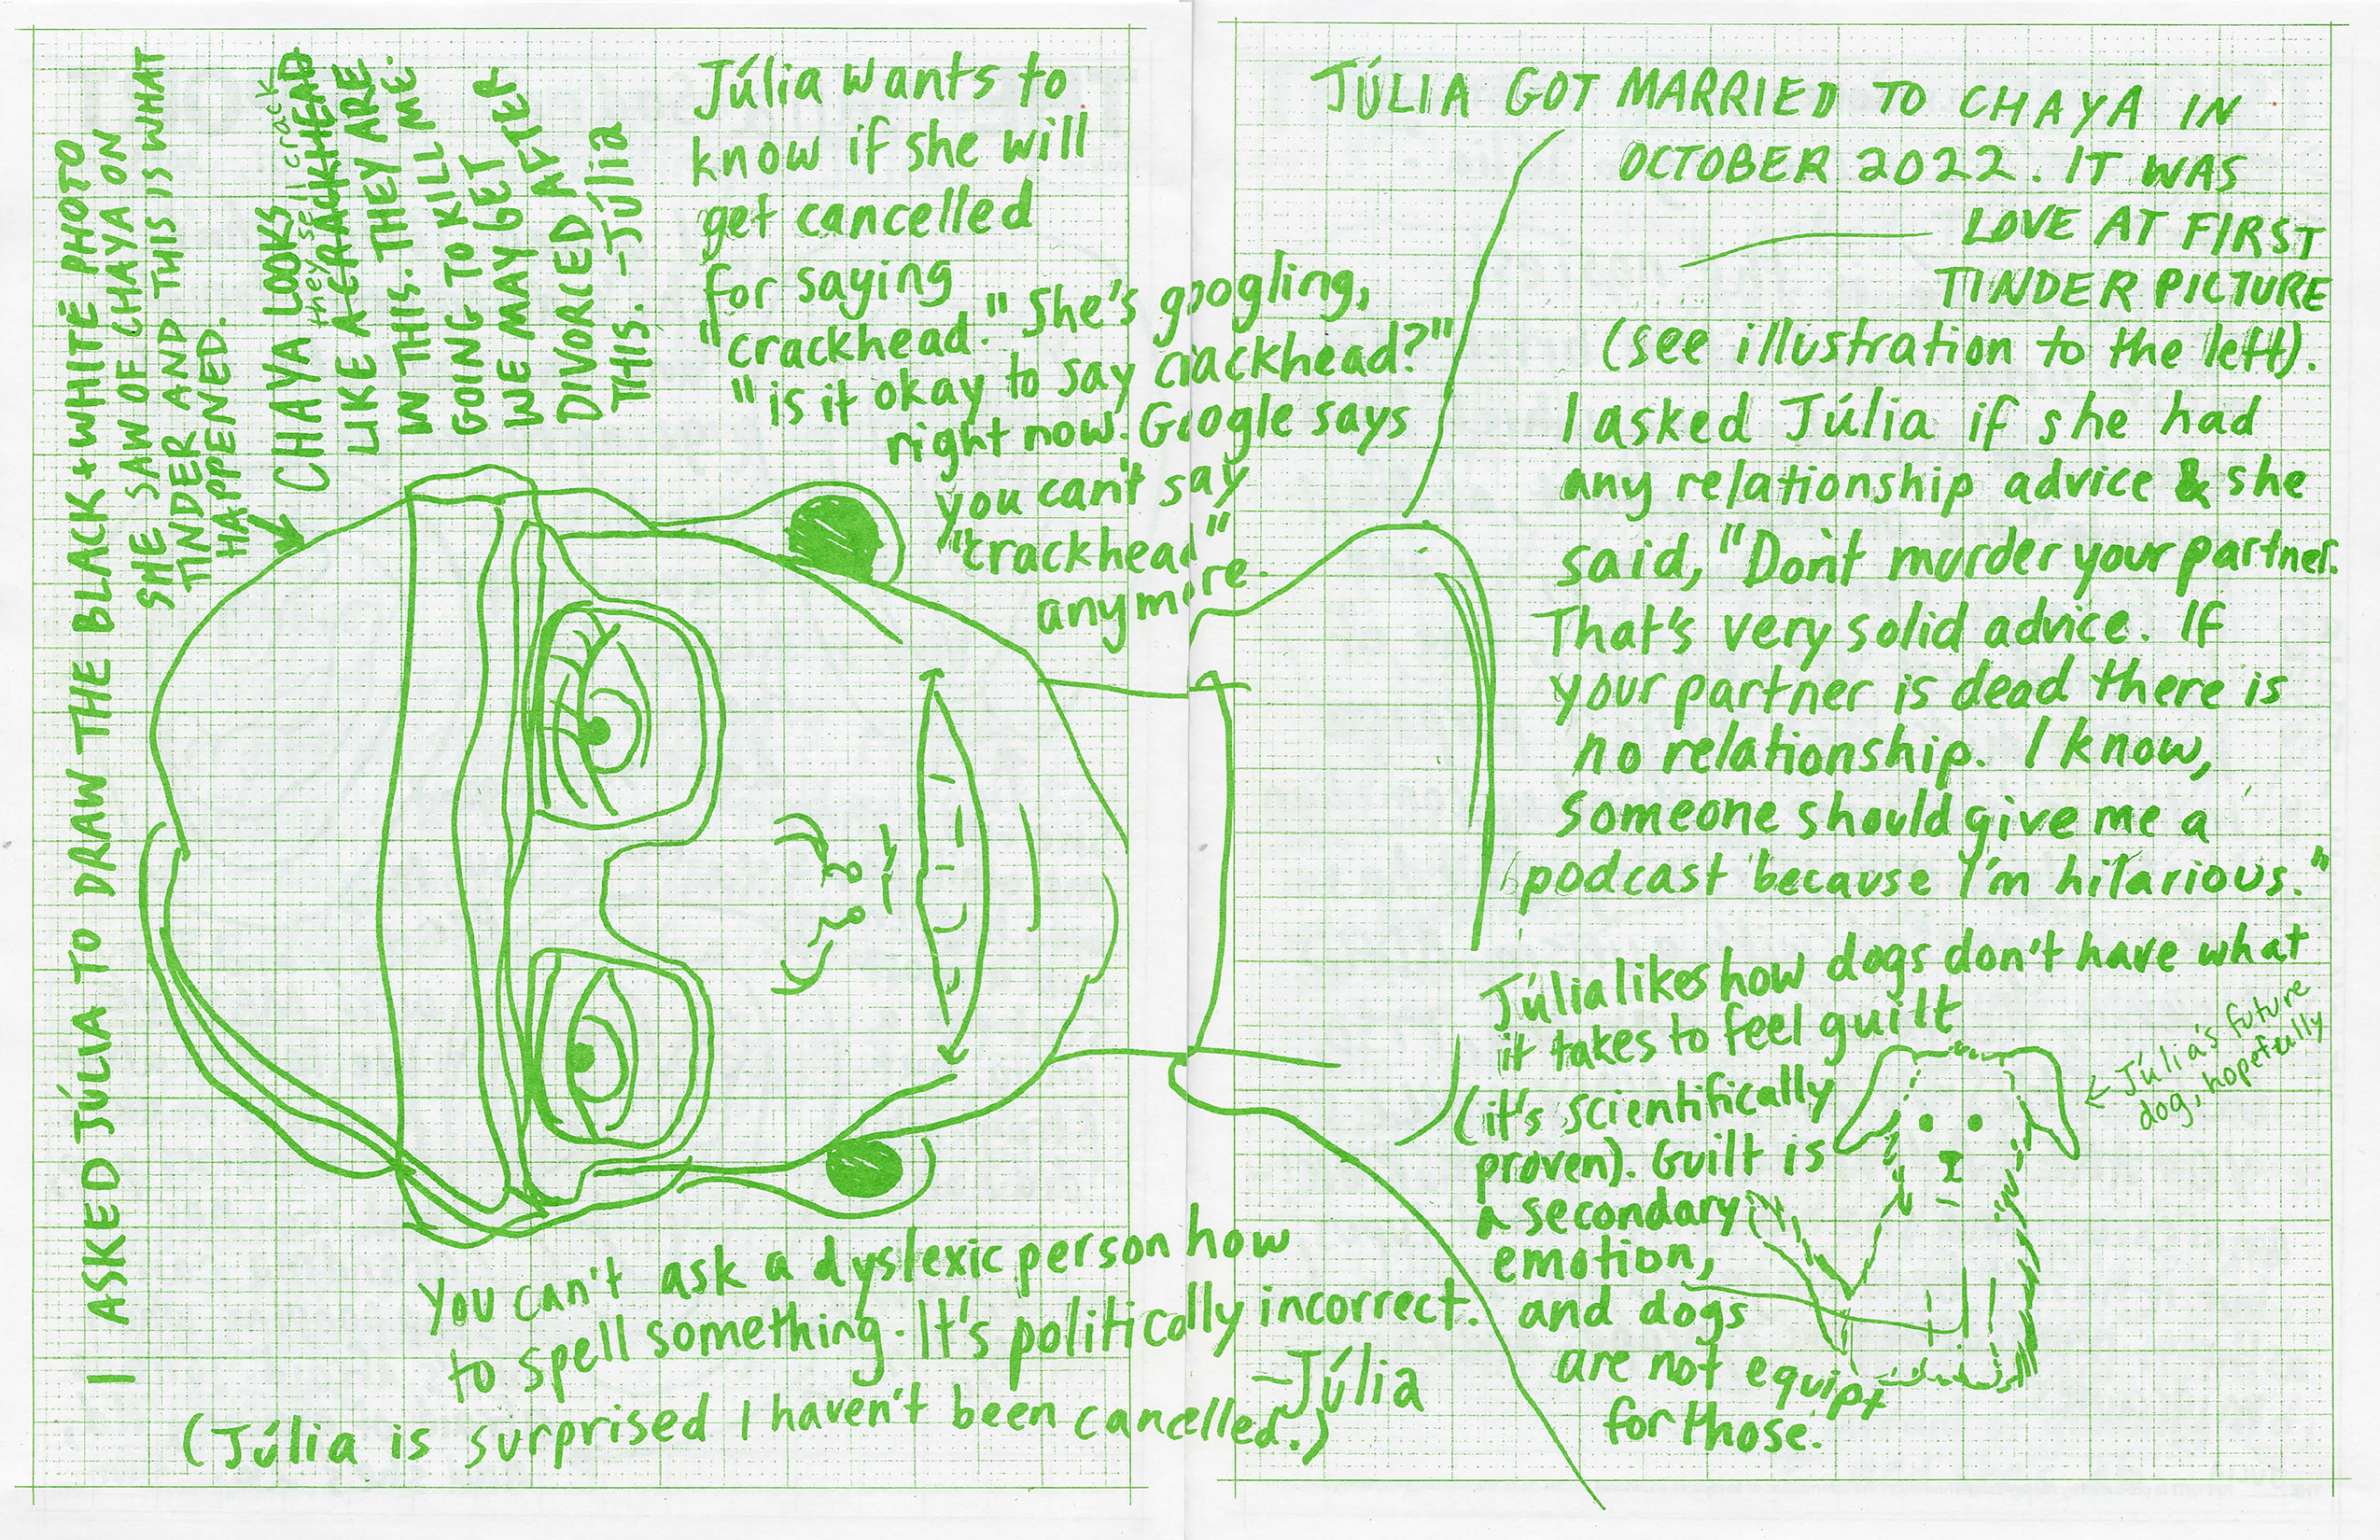 I ASKED JÚLIA TO DRAW THE BLACK + WHITE PHOTO
SHE SAW OF CHAYA ON
TINDER AND THIS IS WHAT
HAPPENED.
CHAYA LOOKS
they sell crack
LIKE A CRACKHEAD
IN THIS. THEY ARE
GOING TO KILL ME.
WE MAY GET
DIVORCED AFTER
THIS. -JÚlia
Júlia wants to
know if she will
get cancelled
for saying
"crackhead." She's googling,
"is it okay to say crackhead?"
right now. Google says
you can't say
"crackhead"
anymore.
You can't ask a dyslexic person how
to spell something. It's politically incorrect.
-Júlia
(Júlia is surprised I haven't been cancelled.)
JÚLIA GOT MARRIED TO CHAYA IN
OCTOBER 2022. IT WAS
LOVE AT FIRST
TINDER PICTURE
(see illustration to the left).
I asked Júlia if she had
any relationship advice & she
said, "Don't murder your partner.
That's very solid advice. If
your partner is dead there is
no relationship. I know,
someone should give me a
podcast because I'm hilarious."
Júlia likes how dogs don't have what
it takes to feel guilt
(it's scientifically
proven). Guilt is
a secondary
emotion,
and dogs
are not equipt
for those.
← Júlia's future
dog, hopefully